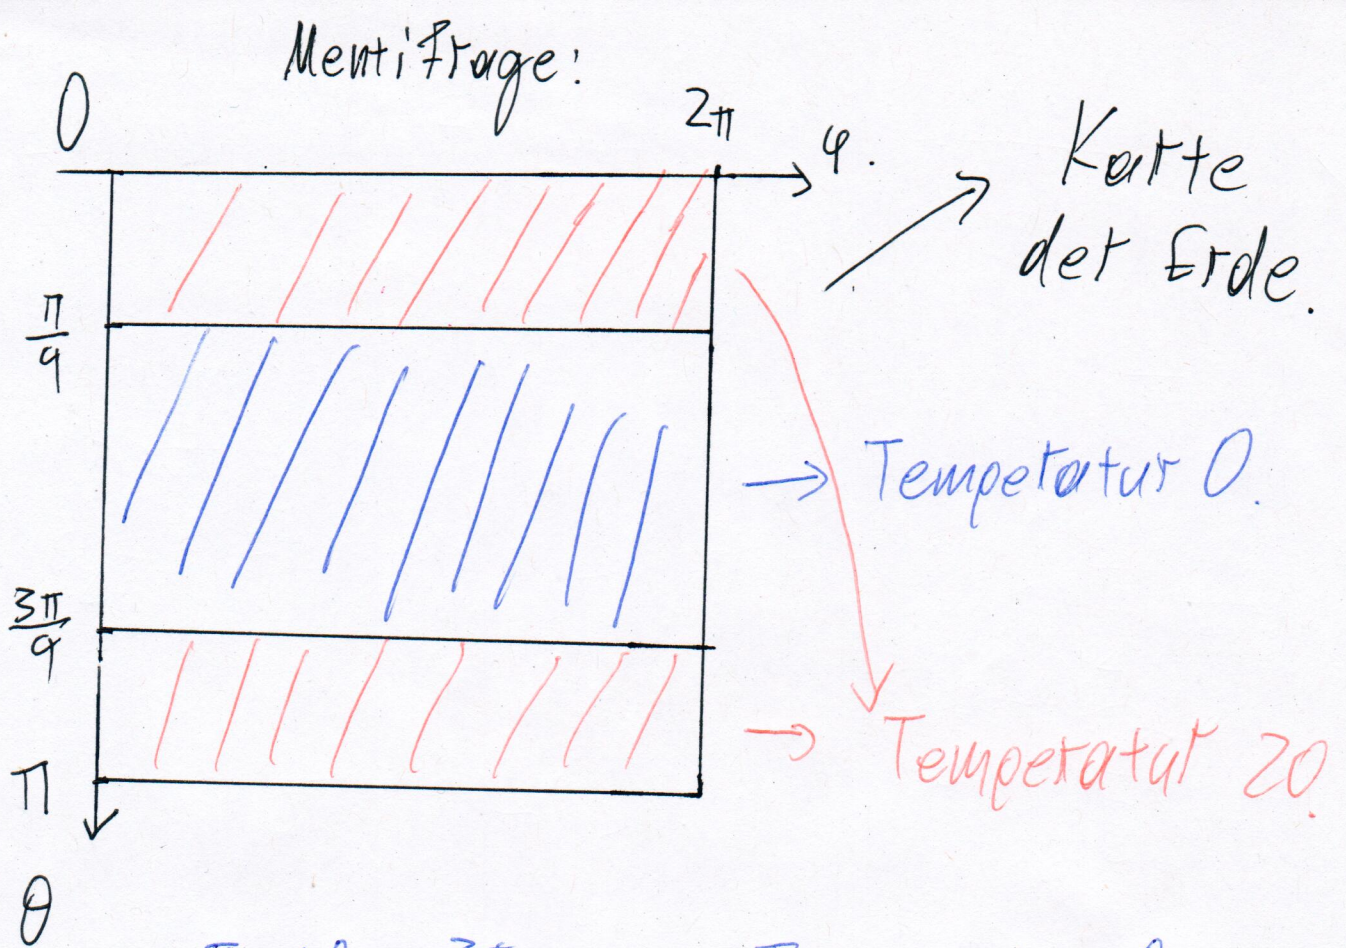 Menti Frage:
0
2π
φ.
Karte
der Erde.
π/4
Temperatur 0.
3π/4
Temperatur 20.
π
θ